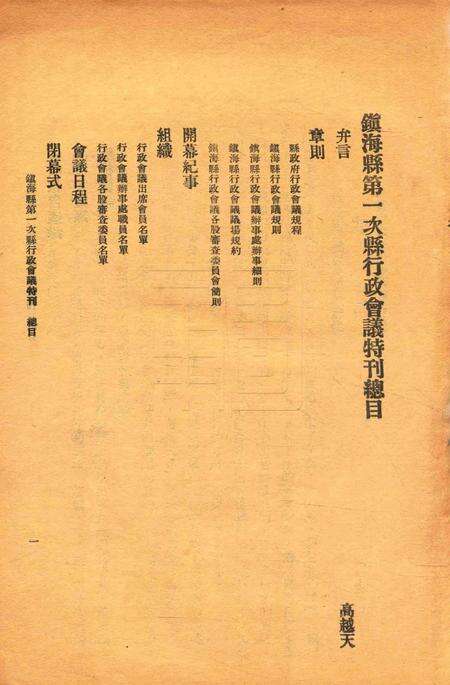 鎭海縣第一次縣行政會議特刊總目
弁言 高越天
章則
縣政府行政會議規程
鎭海縣行政會議規則
鎭海縣行政會議辦事處辦事細則
鎭海縣行政會議議塲規約
鎭海縣行政會議各股審查委員會簡則
開幕紀事
組織
行政會議出席會員名單
行政會議辦事處職員名單
行政會議各股審查委員名單
會議日程
閉幕式
鎭海縣第一次縣行政會議特刊 總目
一